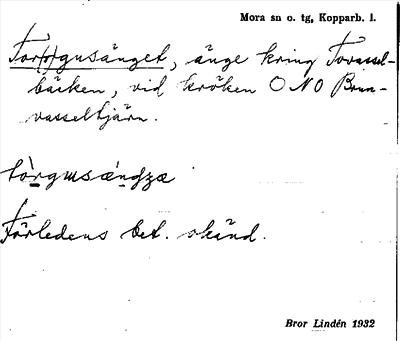 Mora sn o. tg, Kopparb. l.
Tor(r)gusänget, änge kring Torassel-
bäcken, vid kröken ONO Brun-
vasseltjärn.
Förledens bet. okänd.
Bror Lindén 1932